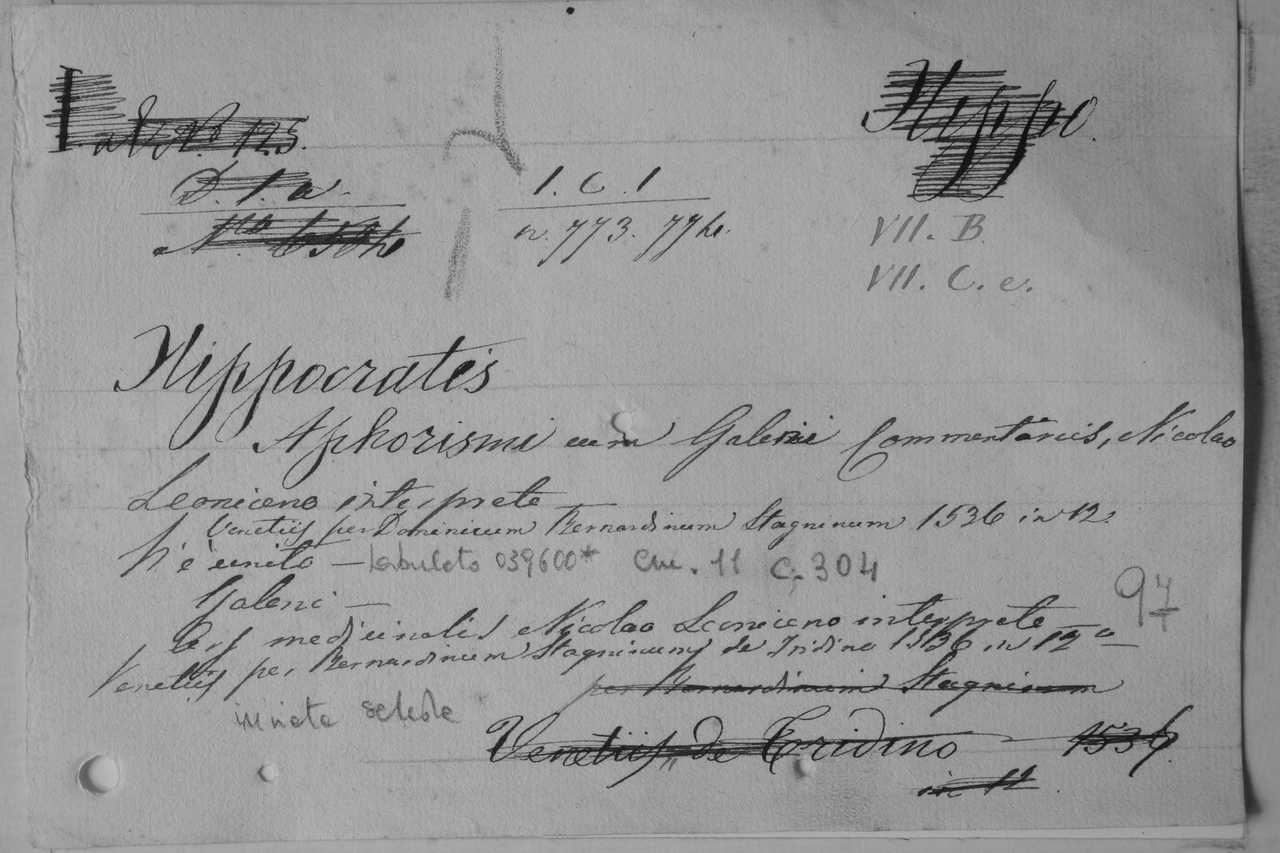 Hippo.
D. 1. a.
1. C. 1
n. 773. 77he.
VII. B
VII. C. e.
Hippocratis
Aphorismi cum Galeni Commentariis, Nicolao
Leoniceno interprete —
Venetiis per Dominicum Bernardinum Stagninum 1536 in 12.
V'è unito — 039600* Cm. 11 C. 304
Galeni —
97
Ars medicinalis Nicolao Leoniceno interprete
Venetiis per Bernardinum Stagninum de Tridino 1536 in 12° —
per Bernardinum Stagninum
schede
Venetiis, de Tridino — 1536.
in 12